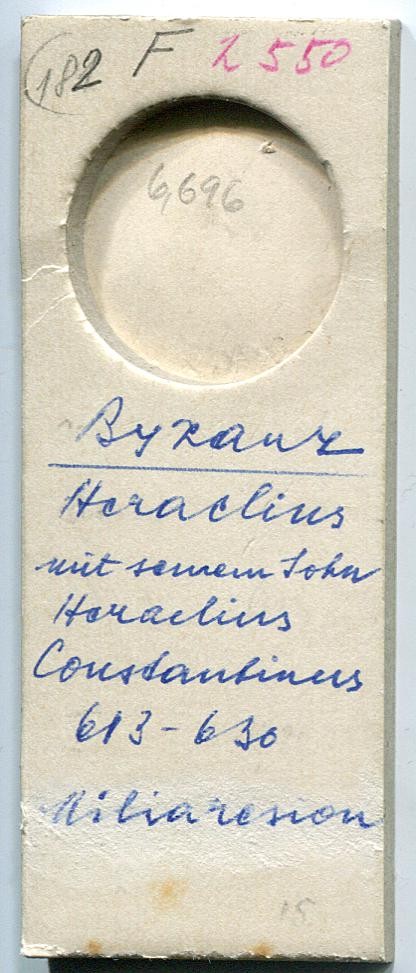 182 F 2550
6,696
Byzanz
Heraclius
mit seinem Sohn
Heraclius
Constantinus
613-630
Miliaresion
15